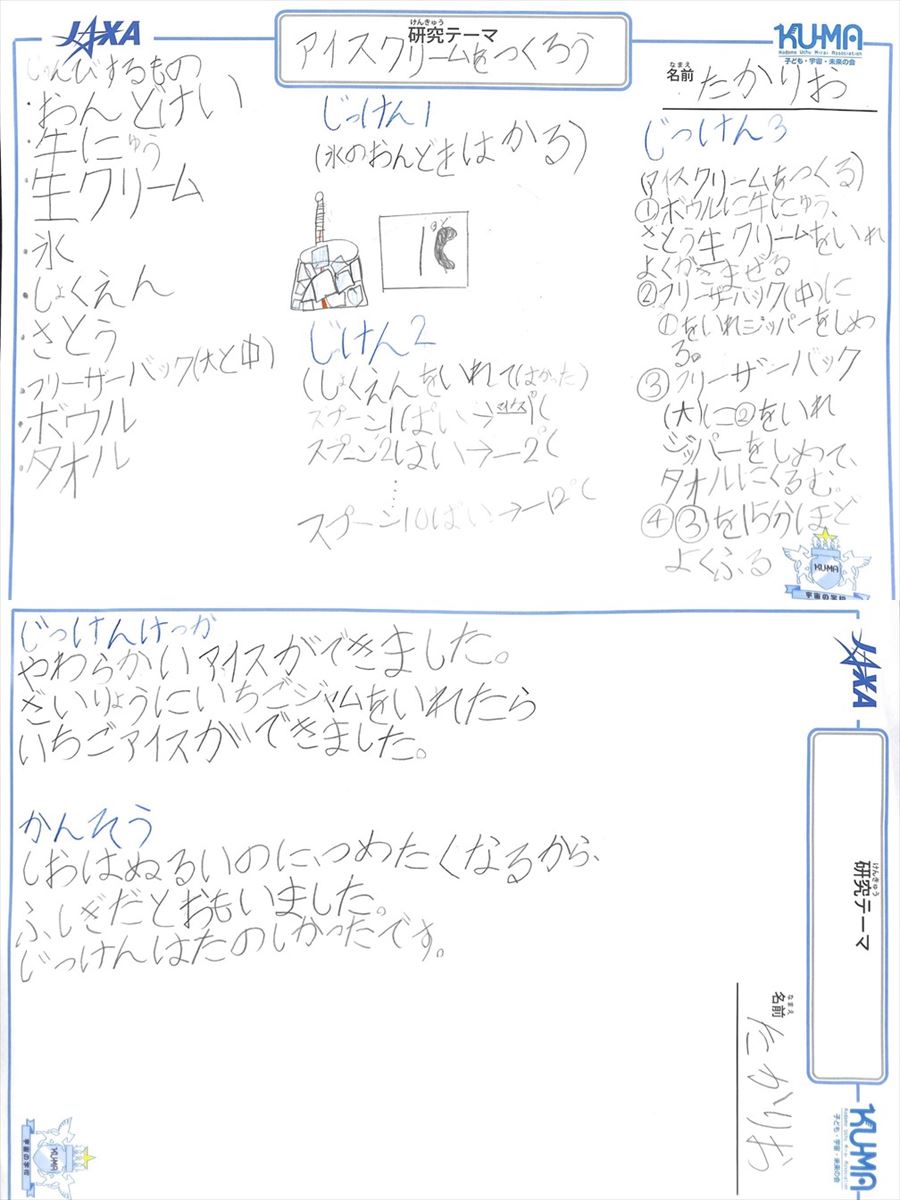 JAXA
けんきゅう
研究テーマ
アイスクリームをつくろう
KU-MA
Kodomo Uchu Mirai Association
子ども・宇宙・未来の会
なまえ
名前
たかりお
じゅんびするもの
・おんどけい
・牛にゅう
・生クリーム
・氷
・しょくえん
・さとう
・フリーザーバック(大と中)
・ボウル
・タオル
じっけん1
(氷のおんどをはかる)
1℃
じけん2
(しょくえんをいれてはかった)
スプーン1ぱい→マイナス1℃
スプーン2はい→-2℃
⋮
スプーン10ぱい→-12℃
じっけん3
(アイスクリームをつくる)
①ボウルに牛にゅう、
さとう生クリームをいれ
よくかきまぜる
②フリーザーバック(中)に
①をいれジッパーをしめ
る。
③フリーザーバック
(大)に②をいれ
ジッパーをしめて、
タオルにくるむ。
④③を15分ほど
よくふる
KU-MA
宇宙の学校
じっけんけっか
やわらかいアイスができました。
ざいりょうにいちごジャムをいれたら
いちごアイスができました。
かんそう
しおはぬるいのに、つめたくなるから、
ふしぎだとおもいました。
じっけんはたのしかったです。
JAXA
けんきゅう
研究テーマ
なまえ
名前
たかりお
KU-MA
Kodomo Uchu Mirai Association
子ども・宇宙・未来の会
KU-MA
宇宙の学校